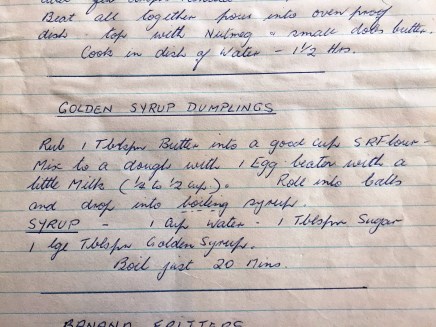 Beat all together pour into oven proof
dish - top with Nutmeg & small dobs butter.
Cook in dish of Water - 1½ Hrs.
GOLDEN SYRUP DUMPLINGS
Rub 1 Tblspn Butter into a good cup S R Flour -
Mix to a dough with 1 Egg beaten with a
little Milk (¼ to ½ cup). Roll into balls
and drop into boiling syrup.
SYRUP - 1 Cup Water - 1 Tblspn Sugar
1 lge Tblspn Golden Syrup.
Boil just 20 Mins.
BANANA FRITTERS